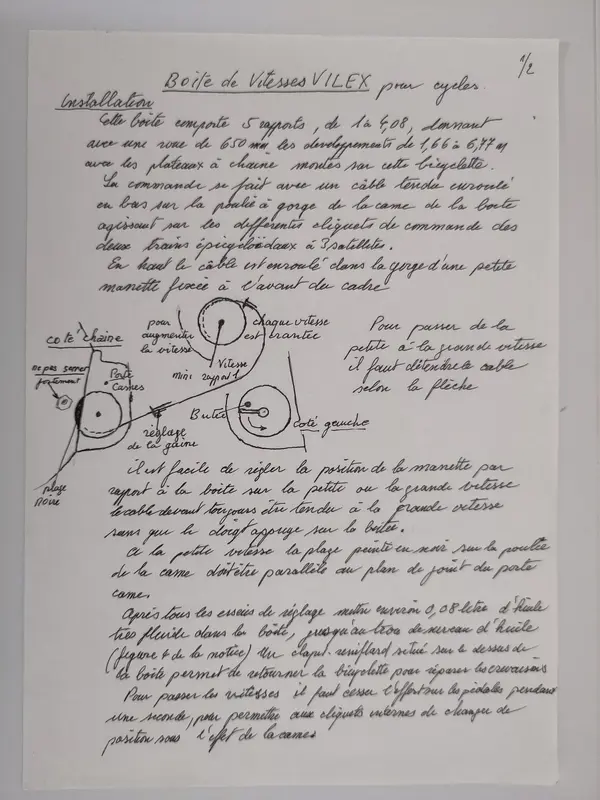 1/2
Boite de Vitesses VILEX pour cycles.
Installation
Cette boite comporte 5 rapports, de 1 à 4,08, donnant
avec une roue de 650 mm les developpements de 1,66 à 6,77 m
avec les plateaux à chaine montés sur cette bicyclette.
La commande se fait avec un câble tendu enroulé
en bas sur la poulie à gorge de la came de la boite
agissant sur les differents cliquets de commande des
deux trains épicycloïdaux à 3 satellites.
En haut le câble est enroulé dans la gorge d'une petite
manette fixée à l'avant du cadre
pour
augmenter
la vitesse
chaque vitesse
est crantée
Vitesse
mini rapport 1
Pour passer de la
petite à la grande vitesse
il faut détendre le cable
selon la flèche
coté chaine
ne pas serrer
fortement
Porte
Cames
Butée
coté gauche
réglage
de la gaine
plage
noire
il est facile de régler la position de la manette par
rapport à la boite sur la petite ou la grande vitesse
le cable devant toujours être tendu à la grande vitesse
sans que le doigt appuye sur la butée.
A la petite vitesse la plage peinte en noir sur la poulie
de la came doit être parallèle au plan de joint du porte
came.
Après tous les essais de réglage mettre environ 0,08 litre d'huile
très fluide dans la boite, jusqu'au trou de niveau d'huile
(figure 4 de la notice) Un clapet reniflard situé sur le dessus de
la boite permet de retourner la bicyclette pour réparer les crevaisons
Pour passer les vitesses il faut cesser l'effort sur les pédales pendant
une seconde, pour permettre aux cliquets internes de changer de
position sous l'effet de la cames